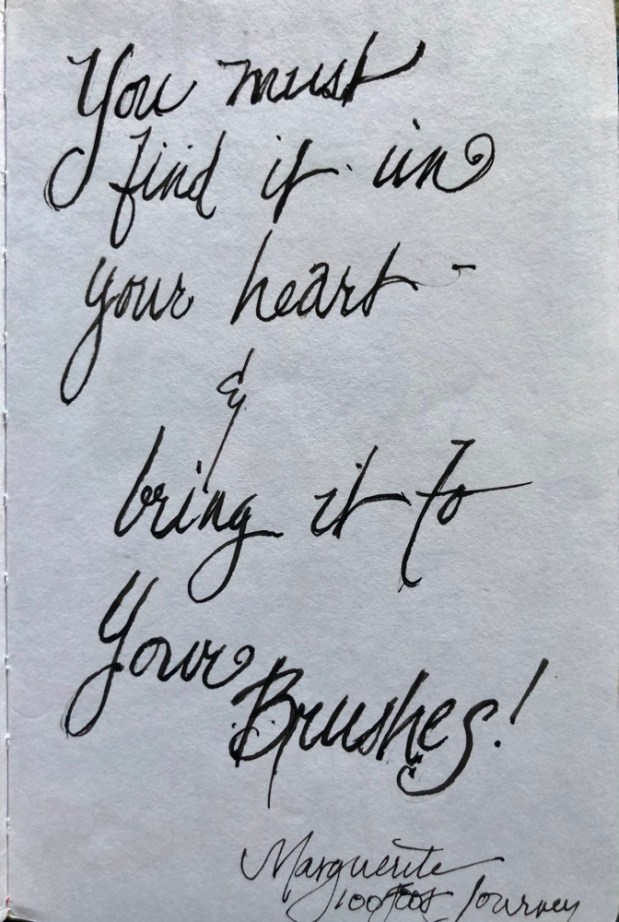 You must
find it in
your heart -
&
bring it to
Your
Brushes!
Marguerite
Journey